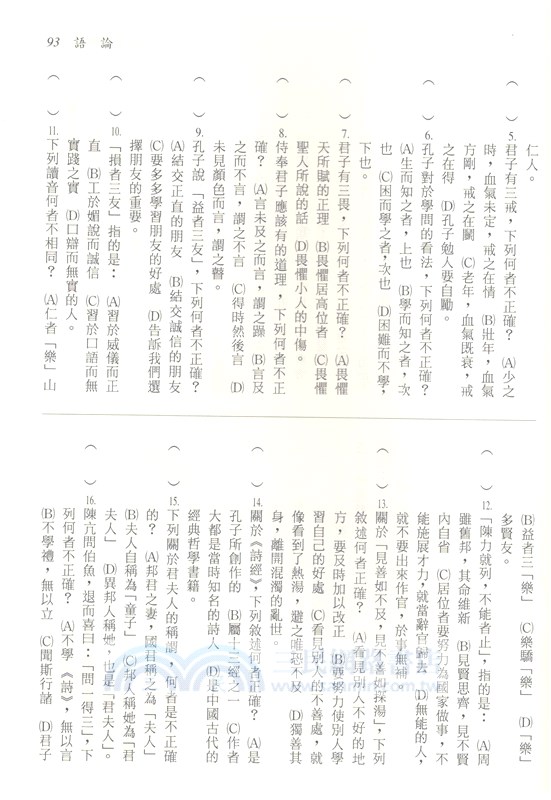 論 語 93
仁人。
( ) 5.君子有三戒，下列何者不正確？ (A)少之
時，血氣未定，戒之在情 (B)壯年，血氣
方剛，戒之在鬬 (C)老年，血氣既衰，戒
之在得 (D)孔子勉人要自勵。
( ) 6.孔子對於學問的看法，下列何者不正確？
(A)生而知之者，上也 (B)學而知之者，次
也 (C)困而學之者，次也 (D)困難而不學，
下也。
( ) 7.君子有三畏，下列何者不正確？ (A)畏懼
天所賦的正理 (B)畏懼居高位者 (C)畏懼
聖人所說的話 (D)畏懼小人的中傷。
( ) 8.侍奉君子應該有的道理，下列何者不正
確？ (A)言未及之而言，謂之躁 (B)言及
之而不言，謂之不言 (C)得時然後言 (D)
未見顏色而言，謂之瞽。
( ) 9.孔子說「益者三友」，下列何者不正確？
(A)結交正直的朋友 (B)結交誠信的朋友
(C)要多多學習朋友的好處 (D)告訴我們選
擇朋友的重要。
( ) 10.「損者三友」指的是： (A)習於威儀而正
直 (B)工於媚說而誠信 (C)習於口語而無
實踐之實 (D)口辯而無實的人。
( ) 11.下列讀音何者不相同？ (A)仁者「樂」山
(B)益者三「樂」 (C)樂驕「樂」 (D)「樂」
多賢友。
( ) 12.「陳力就列，不能者止」，指的是： (A)周
雖舊邦，其命維新 (B)見賢思齊，見不賢
內自省 (C)居位者要努力為國家做事，不
能施展才力，就當辭官歸去 (D)無能的人，
就不要出來作官，於事無補。
( ) 13.關於「見善如不及，見不善如探湯」，下列
敘述何者正確？ (A)看見別人不好的地
方，要及時加以改正 (B)要努力使別人學
習自己的好處 (C)看見別人的不善處，就
像看到了熱湯，避之唯恐不及 (D)獨善其
身，離開混濁的亂世。
( ) 14.關於《詩經》，下列敘述何者正確？ (A)是
孔子所創作的 (B)屬十三經之一 (C)作者
大都是當時知名的詩人 (D)是中國古代的
經典哲學書籍。
( ) 15.下列關於君夫人的稱謂，何者是不正確
的？ (A)邦君之妻，國君稱之為「夫人」
(B)夫人自稱為「童子」 (C)邦人稱她為「君
夫人」 (D)異邦人稱她，也是「君夫人」。
( ) 16.陳亢問伯魚，退而喜曰：「問一得三」，下
列何者不正確？ (A)不學《詩》，無以言
(B)不學禮，無以立 (C)聞斯行諸 (D)君子